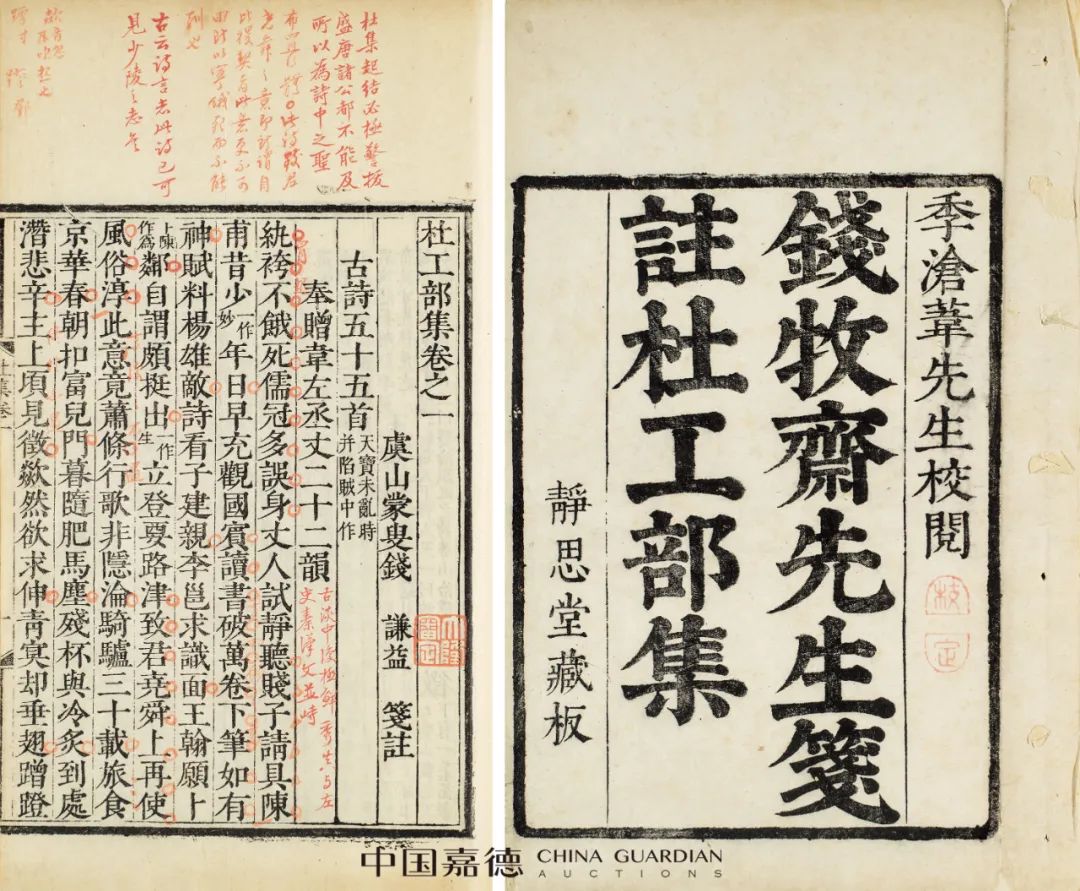 季滄葦先生校閱
錢牧齋先生箋
註杜工部集
靜思堂藏板
杜集起結必極警拔
盛唐諸公都不能及
所以為詩中之聖
古云詩言志此詩已可
見少陵之志矣
杜工部集卷之一
虞山蒙叟錢 謙益 箋註
古詩五十五首 天寶未亂時并陷賊中作
奉贈韋左丞丈二十二韻
紈袴不餓死儒冠多誤身丈人試靜聽賤子請具陳
甫昔少一作妙年日早充觀國賓讀書破萬卷下筆如有
神賦料楊雄敵詩看子建親李邕求識面王翰願上
上陳作為鄰自謂頗挺出一作生立登要路津致君堯舜上再使
風俗淳此意竟蕭條行歌非隱淪騎驢三十載旅食
京華春朝扣富兒門暮隨肥馬塵殘杯與冷炙到處
潛悲辛主上頃見徵歘然欲求伸青冥却垂翅蹭蹬
中国嘉德 CHINA GUARDIAN
AUCTIONS